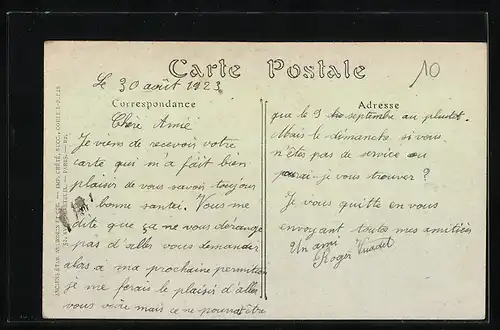 Carte Postale
10
Le 30 août 1923
Correspondance
Adresse
Chère Amie
Je viens de recevoir votre
carte qui m'a fait bien
plaisir de vous savoir toujour
bonne santéi. Vous me
dite que ça ne vous dérange
pas d'aller vous demander
alors à ma prochaine permition
je me ferais le plaisir d'aller
vous voire mais ce ne pourat être
que le 9 septembre au plutot.
Mais le démanche si vous
n'êtes pas de service ou
pourai-je vous trouver ?
Je vous quitte en vous
envoyant toutes mes amitiées
Un ami
Roger